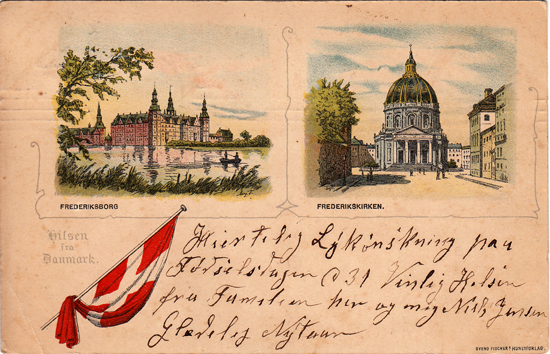 FREDERIKSBORG
FREDERIKSKIRKEN.
Hilsen
fra
Danmark.
Hiertelig Lykönskning paa
Födselsdagen d 31 Vinlig Helsen
fra Familien her og mig Niels Jensen
Gladelig Nytaar
SVEND FISCHER'S KUNSTFORLAG.